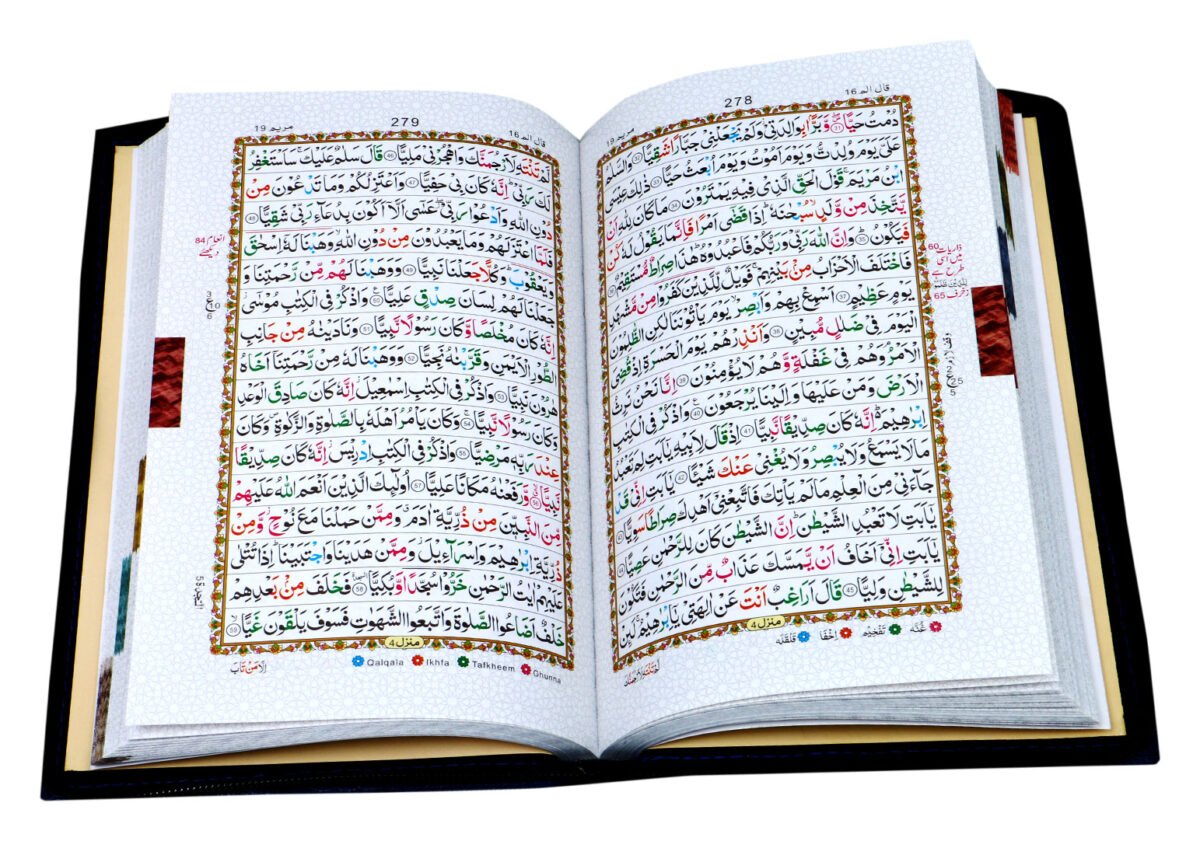 278
قال الم ١٦
مريم 19
دُمْتُ حَيًّا ﴿31﴾ وَّبَرًّۢا بِوَالِدَتِيْ وَلَمْ يَجْعَلْنِيْ جَبَّارًا شَقِيًّا ﴿32﴾ وَالسَّلٰمُ
عَلَيَّ يَوْمَ وُلِدْتُّ وَيَوْمَ اَمُوْتُ وَيَوْمَ اُبْعَثُ حَيًّا ﴿33﴾ ذٰلِكَ عِيْسَى
ابْنُ مَرْيَمَ ۚ قَوْلَ الْحَقِّ الَّذِيْ فِيْهِ يَمْتَرُوْنَ ﴿34﴾ مَا كَانَ لِلّٰهِ اَنْ
يَّتَّخِذَ مِنْ وَّلَدٍ ۙ سُبْحٰنَهٗ ؕ اِذَا قَضٰٓى اَمْرًا فَاِنَّمَا يَقُوْلُ لَهٗ كُنْ
فَيَكُوْنُ ﴿35﴾ وَاِنَّ اللّٰهَ رَبِّيْ وَرَبُّكُمْ فَاعْبُدُوْهُ ؕ هٰذَا صِرَاطٌ مُّسْتَقِيْمٌ ﴿36﴾
فَاخْتَلَفَ الْاَحْزَابُ مِنْۢ بَيْنِهِمْ ۚ فَوَيْلٌ لِّلَّذِيْنَ كَفَرُوْا مِنْ مَّشْهَدِ
يَوْمٍ عَظِيْمٍ ﴿37﴾ اَسْمِعْ بِهِمْ وَاَبْصِرْ ۙ يَوْمَ يَاْتُوْنَنَا لٰكِنِ الظّٰلِمُوْنَ
الْيَوْمَ فِيْ ضَلٰلٍ مُّبِيْنٍ ﴿38﴾ وَاَنْذِرْهُمْ يَوْمَ الْحَسْرَةِ اِذْ قُضِيَ
الْاَمْرُ ۘ وَهُمْ فِيْ غَفْلَةٍ وَّهُمْ لَا يُؤْمِنُوْنَ ﴿39﴾ اِنَّا نَحْنُ نَرِثُ
الْاَرْضَ وَمَنْ عَلَيْهَا وَاِلَيْنَا يُرْجَعُوْنَ ﴿40﴾ وَاذْكُرْ فِي الْكِتٰبِ
اِبْرٰهِيْمَ ؕ۬ اِنَّهٗ كَانَ صِدِّيْقًا نَّبِيًّا ﴿41﴾ اِذْ قَالَ لِاَبِيْهِ يٰٓاَبَتِ لِمَ تَعْبُدُ
مَا لَا يَسْمَعُ وَلَا يُبْصِرُ وَلَا يُغْنِيْ عَنْكَ شَيْئًا ﴿42﴾ يٰٓاَبَتِ اِنِّيْ قَدْ
جَآءَنِيْ مِنَ الْعِلْمِ مَا لَمْ يَاْتِكَ فَاتَّبِعْنِيْٓ اَهْدِكَ صِرَاطًا سَوِيًّا ﴿43﴾
يٰٓاَبَتِ لَا تَعْبُدِ الشَّيْطٰنَ ؕ اِنَّ الشَّيْطٰنَ كَانَ لِلرَّحْمٰنِ عَصِيًّا ﴿44﴾
يٰٓاَبَتِ اِنِّيْٓ اَخَافُ اَنْ يَّمَسَّكَ عَذَابٌ مِّنَ الرَّحْمٰنِ فَتَكُوْنَ
لِلشَّيْطٰنِ وَلِيًّا ﴿45﴾ قَالَ اَرَاغِبٌ اَنْتَ عَنْ اٰلِهَتِيْ يٰٓاِبْرٰهِيْمُ ۚ لَئِنْ
منزل 4
غُنَّه تَفْخِيْم اِخْفَا قَلْقَلَه
279
قال الم ١٦
مريم 19
لَّمْ تَنْتَهِ لَاَرْجُمَنَّكَ وَاهْجُرْنِيْ مَلِيًّا ﴿46﴾ قَالَ سَلٰمٌ عَلَيْكَ ۚ سَاَسْتَغْفِرُ
لَكَ رَبِّيْ ؕ اِنَّهٗ كَانَ بِيْ حَفِيًّا ﴿47﴾ وَاَعْتَزِلُكُمْ وَمَا تَدْعُوْنَ مِنْ
دُوْنِ اللّٰهِ وَاَدْعُوْا رَبِّيْ ۖ عَسٰٓى اَلَّآ اَكُوْنَ بِدُعَآءِ رَبِّيْ شَقِيًّا ﴿48﴾
فَلَمَّا اعْتَزَلَهُمْ وَمَا يَعْبُدُوْنَ مِنْ دُوْنِ اللّٰهِ ۙ وَهَبْنَا لَهٗٓ اِسْحٰقَ
وَيَعْقُوْبَ ؕ وَكُلًّا جَعَلْنَا نَبِيًّا ﴿49﴾ وَوَهَبْنَا لَهُمْ مِّنْ رَّحْمَتِنَا وَ
جَعَلْنَا لَهُمْ لِسَانَ صِدْقٍ عَلِيًّا ﴿50﴾ وَاذْكُرْ فِي الْكِتٰبِ مُوْسٰٓى ؗ
اِنَّهٗ كَانَ مُخْلَصًا وَّكَانَ رَسُوْلًا نَّبِيًّا ﴿51﴾ وَنَادَيْنٰهُ مِنْ جَانِبِ
الطُّوْرِ الْاَيْمَنِ وَقَرَّبْنٰهُ نَجِيًّا ﴿52﴾ وَوَهَبْنَا لَهٗ مِنْ رَّحْمَتِنَآ اَخَاهُ
هٰرُوْنَ نَبِيًّا ﴿53﴾ وَاذْكُرْ فِي الْكِتٰبِ اِسْمٰعِيْلَ ؗ اِنَّهٗ كَانَ صَادِقَ الْوَعْدِ
وَكَانَ رَسُوْلًا نَّبِيًّا ﴿54﴾ وَكَانَ يَاْمُرُ اَهْلَهٗ بِالصَّلٰوةِ وَالزَّكٰوةِ ۪ وَكَانَ
عِنْدَ رَبِّهٖ مَرْضِيًّا ﴿55﴾ وَاذْكُرْ فِي الْكِتٰبِ اِدْرِيْسَ ؗ اِنَّهٗ كَانَ صِدِّيْقًا
نَّبِيًّا ﴿56﴾ وَّرَفَعْنٰهُ مَكَانًا عَلِيًّا ﴿57﴾ اُولٰٓئِكَ الَّذِيْنَ اَنْعَمَ اللّٰهُ عَلَيْهِمْ
مِّنَ النَّبِيّٖنَ مِنْ ذُرِّيَّةِ اٰدَمَ ۗ وَمِمَّنْ حَمَلْنَا مَعَ نُوْحٍ ؗ وَّمِنْ
ذُرِّيَّةِ اِبْرٰهِيْمَ وَاِسْرَآءِيْلَ ؗ وَمِمَّنْ هَدَيْنَا وَاجْتَبَيْنَا ؕ اِذَا تُتْلٰى
عَلَيْهِمْ اٰيٰتُ الرَّحْمٰنِ خَرُّوْا سُجَّدًا وَّبُكِيًّا ﴿58﴾ فَخَلَفَ مِنْۢ بَعْدِهِمْ
خَلْفٌ اَضَاعُوا الصَّلٰوةَ وَاتَّبَعُوا الشَّهَوٰتِ فَسَوْفَ يَلْقَوْنَ غَيًّا ﴿59﴾
منزل 4
Qalqala Ikhfa Tafkheem Ghunna
اِلَّا مَنْ تَابَ